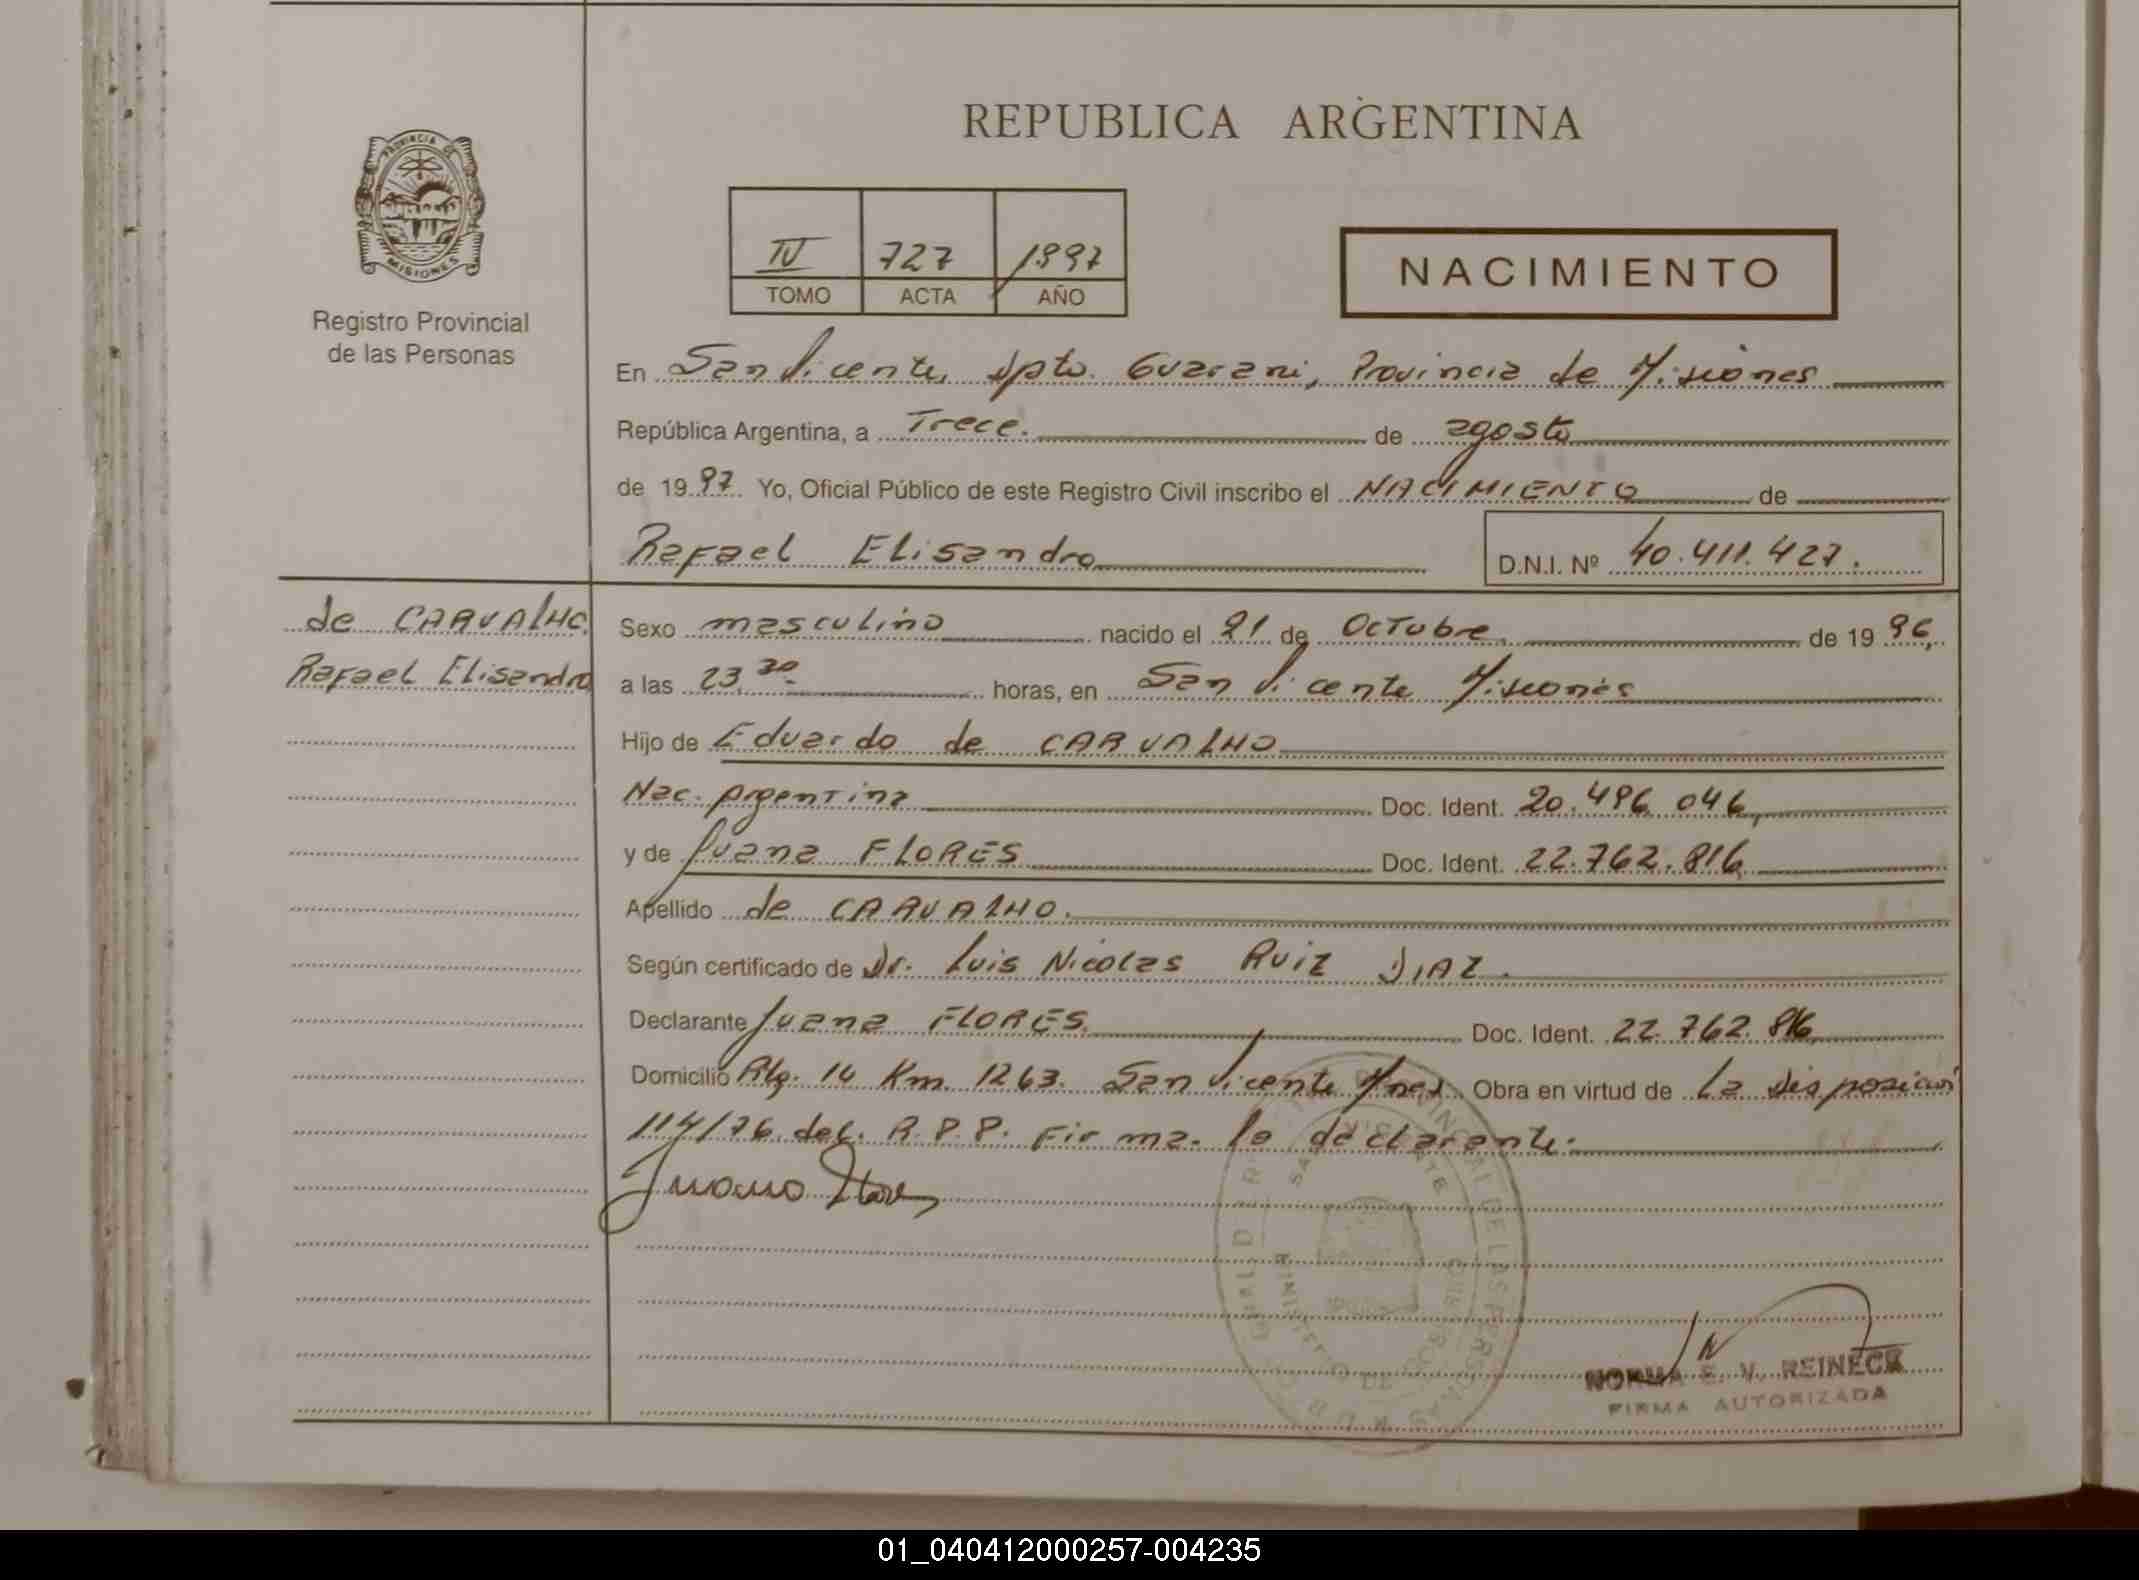 REPUBLICA ARGENTINA
PROVINCIA DE
MISIONES
Registro Provincial
de las Personas
IV 727 1997
TOMO ACTA AÑO
NACIMIENTO
En San Vicente, Dpto. Guarani, Provincia de Misiones
República Argentina, a Trece. de agosto
de 1997 Yo, Oficial Público de este Registro Civil inscribo el NACIMIENTO de
Rafael Elisandro D.N.I. Nº 40.411.427.
de CARVALHO
Rafael Elisandro
Sexo masculino nacido el 21 de Octubre de 1996,
a las 23,30 horas, en San Vicente Misiones
Hijo de Eduardo de CARVALHO
Nac. Argentina Doc. Ident. 20.496.046,
y de Juana FLORES Doc. Ident. 22.762.816
Apellido de CARVALHO.
Según certificado de Dr. Luis Nicolas RUIZ DIAZ.
Declarante Juana FLORES. Doc. Ident. 22.762.816
Domicilio Rta. 14 Km 1263. San Vicente Mnes. Obra en virtud de La Disposicion
114/76 del. R.P.P. Firma. la declarante.
Juana Flores
NORMA E. V. REINECK
FIRMA AUTORIZADA
01_040412000257-004235